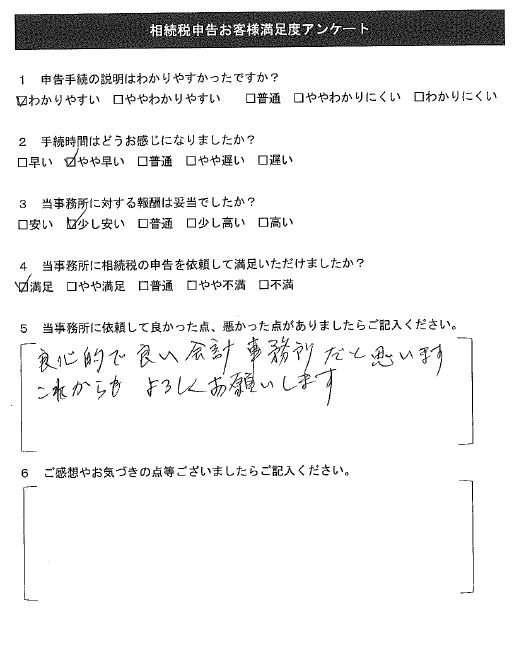 相続税申告お客様満足度アンケート
1 申告手続の説明はわかりやすかったですか？
☑わかりやすい □ややわかりやすい □普通 □ややわかりにくい □わかりにくい
2 手続時間はどうお感じになりましたか？
□早い ☑やや早い □普通 □やや遅い □遅い
3 当事務所に対する報酬は妥当でしたか？
□安い ☑少し安い □普通 □少し高い □高い
4 当事務所に相続税の申告を依頼して満足いただけましたか？
☑満足 □やや満足 □普通 □やや不満 □不満
5 当事務所に依頼して良かった点、悪かった点がありましたらご記入ください。
良心的で良い会計事務所だと思います
これからも よろしくお願いします
6 ご感想やお気づきの点等ございましたらご記入ください。